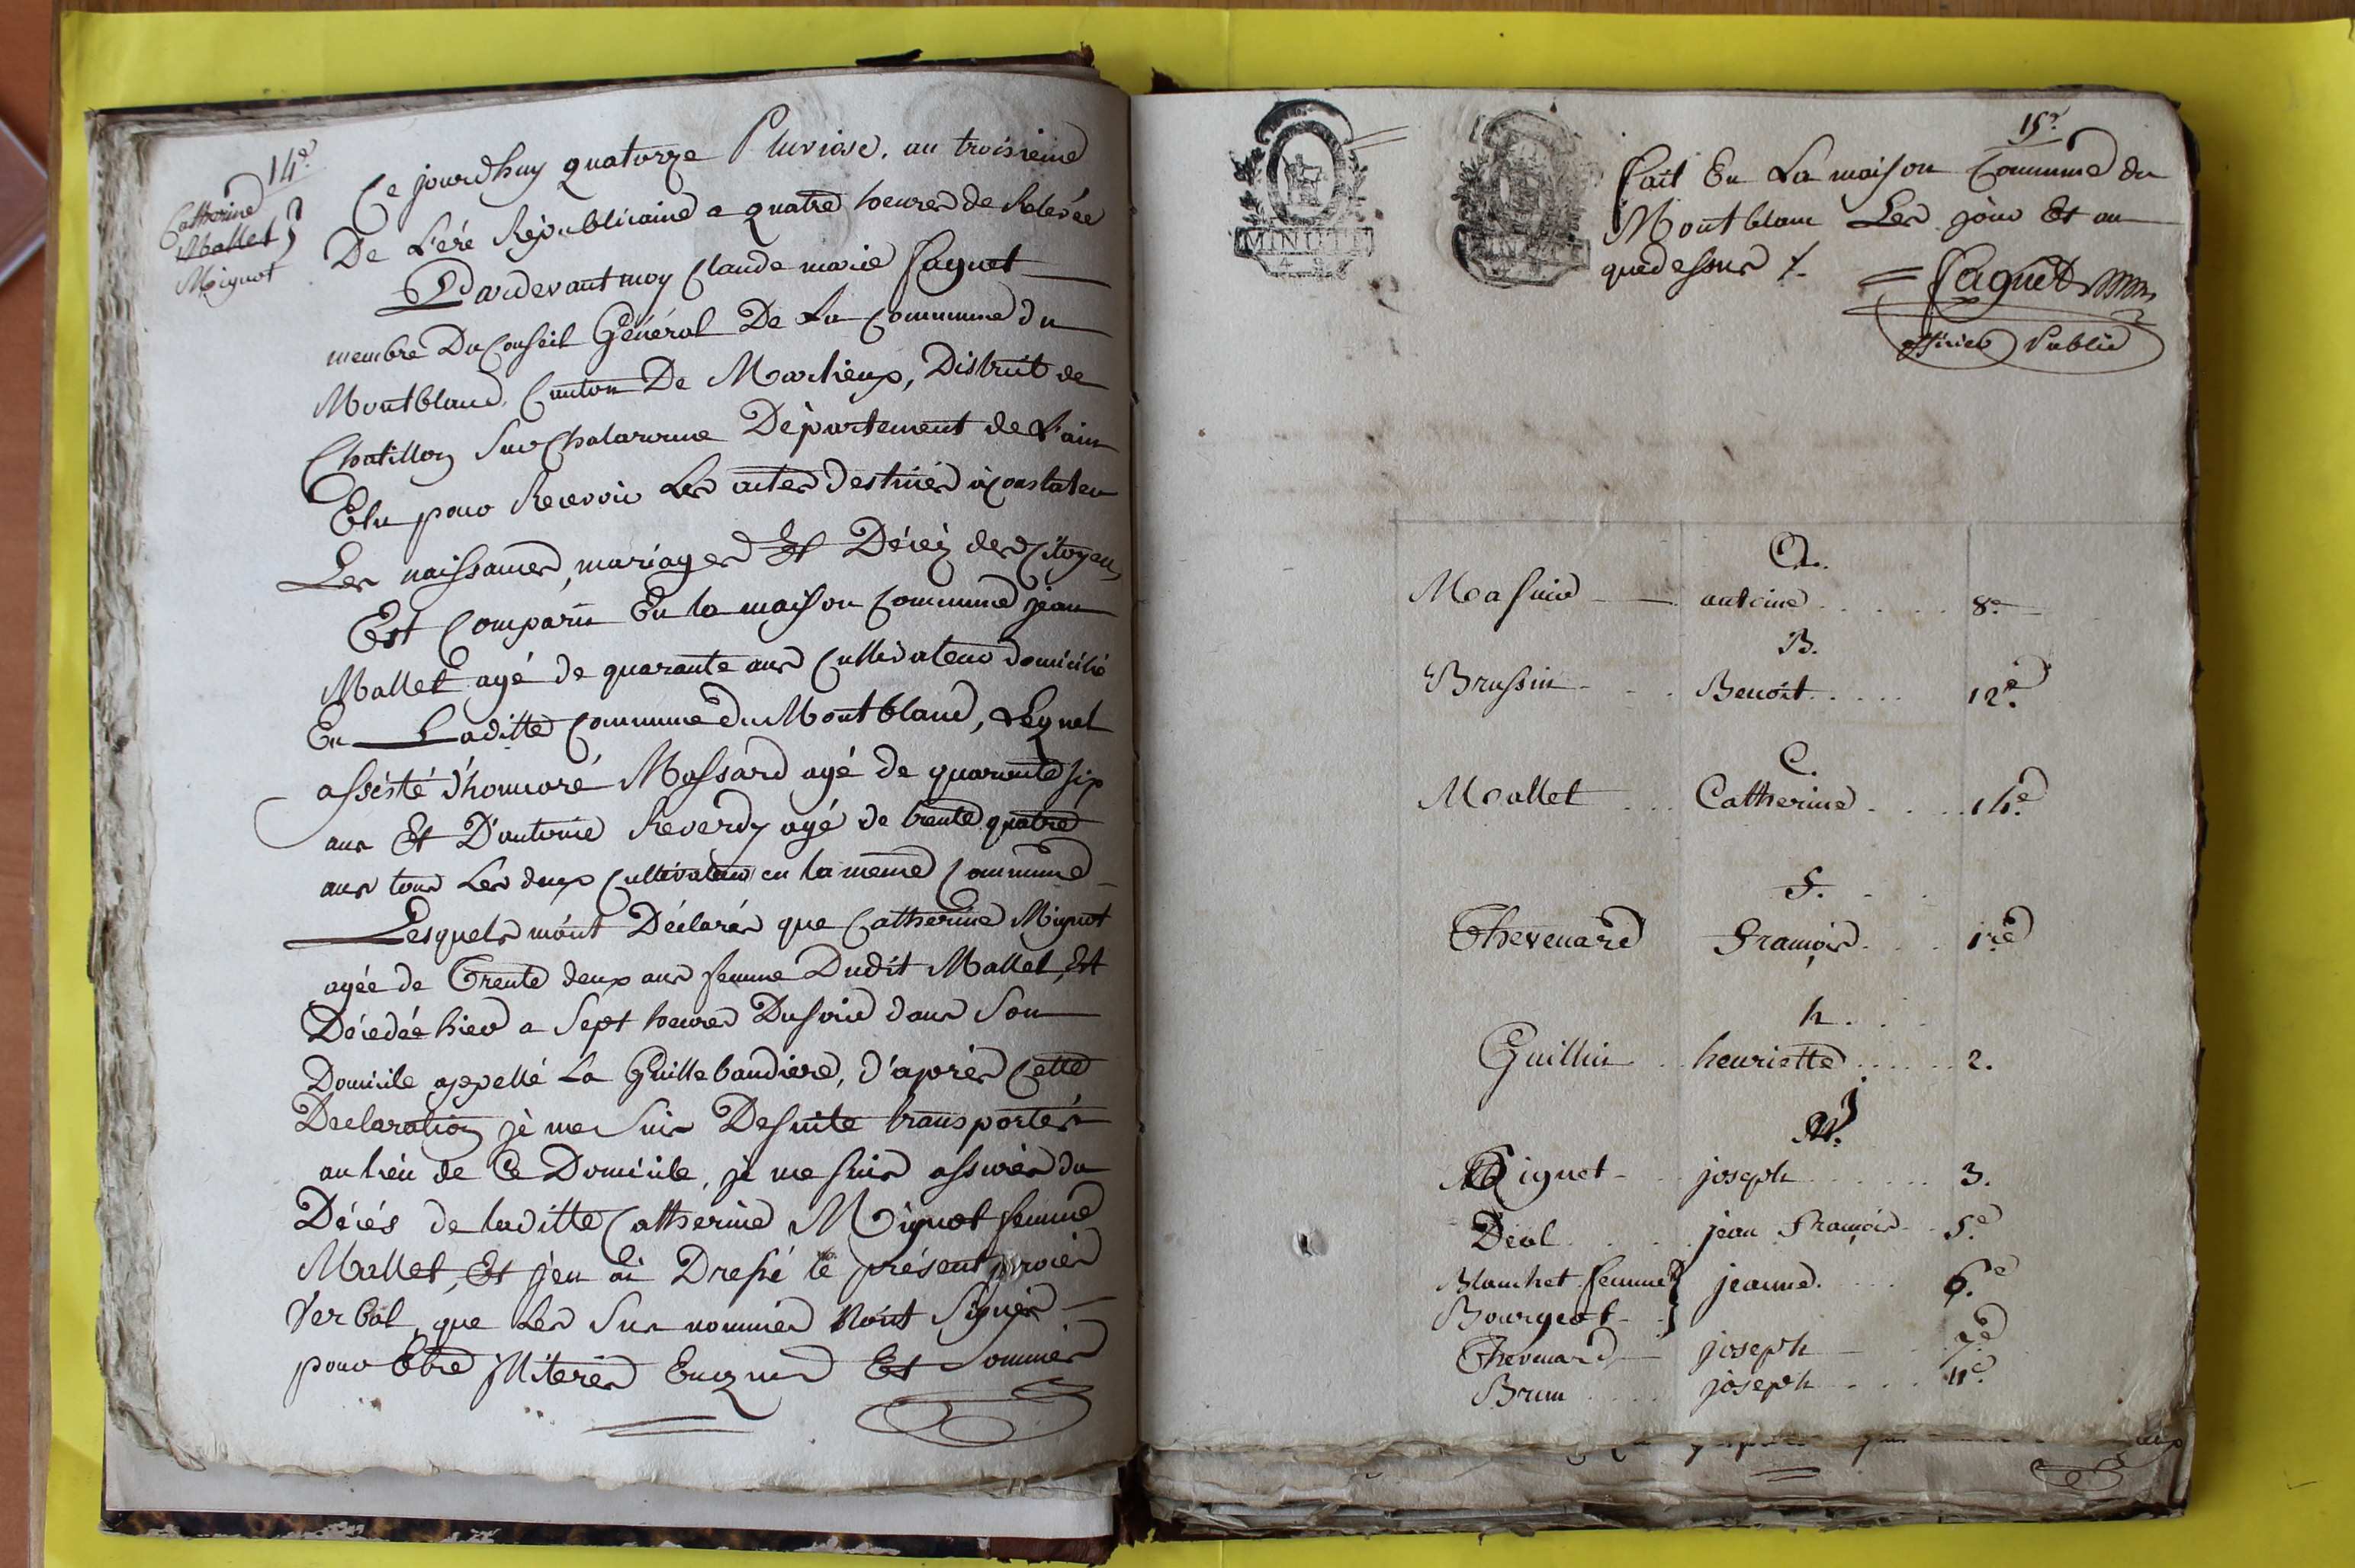 14e.
Catherine
Mallet
Mignot
Ce jourdhuy quatorze Pluviose, an troisieme
De L'eré Républicaine a quatre heures de Relevée
Pardevant moy Claude marie faguet
membre Du Conseil Général De La Commune du
Montblanc, Canton De Marlieux, District de
Chatillon Sur Chalaronne Département de L'ain
Elu pour Recevoir Les actes destinés à constater
Les naissances, mariages Et Décéz des Citoyens
Est Comparu En la maison Commune jean
Mallet agé de quarante ans Cultivateur domicilié
En Laditte Commune du Montblanc, Lequel
assisté d'honnoré Massard agé de quarante six
ans Et D'antoine Reverdy agé de trente quatre
ans tous Les deux Cultivateurs en la meme Commune
Lesquels m'ont Déclarés que Catherine Mignot
agée de Trente deux ans femme Dudit Mallet, Est
Décedée hier a Sept heures Du soir dans Son
Domicile appellé La Guillebaudiere, d'après Cette
Declaration jè me Suis De suite transportés
au liéu de Ce Domicile, je me suis assurés du
Décés de laditte Catherine Mignot femme
Mallet, Et j'en ai Dressé le présent procès
Verbal, que Les Sus nommés N'ont Signés
pour Etre illiterés Enquis Et Sommés
15e.
MINUTE
fait En La maison Commune du
Montblanc Les jour Et an
que dessus /.
faguet
officier Public
A.
Massuir antoine 8e
B.
Brussin Benoit 12e.
C.
Mallet Catherine 14e.
F.
Thevenard François 1re
h.
Guillin henriette 2.
J.
Miguet joseph 3.
Déal jean François 5e
Blanchet femme jeanne 6.e
Bourgeot
Thevenard joseph 7e
Brun joseph 11e.